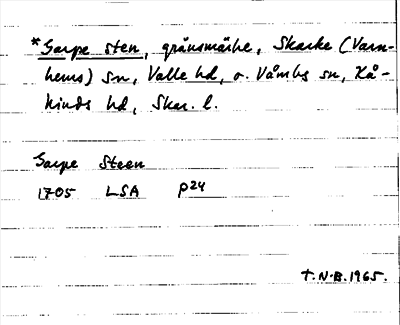 *Garpe sten, gränsmärke, Skarke (Varn-
hems) sn, Valle hd, o. Våmbs sn, Kå-
kinds hd, Skar. l.
Garpe Steen
1705 LSA p24
T.N.B. 1965.